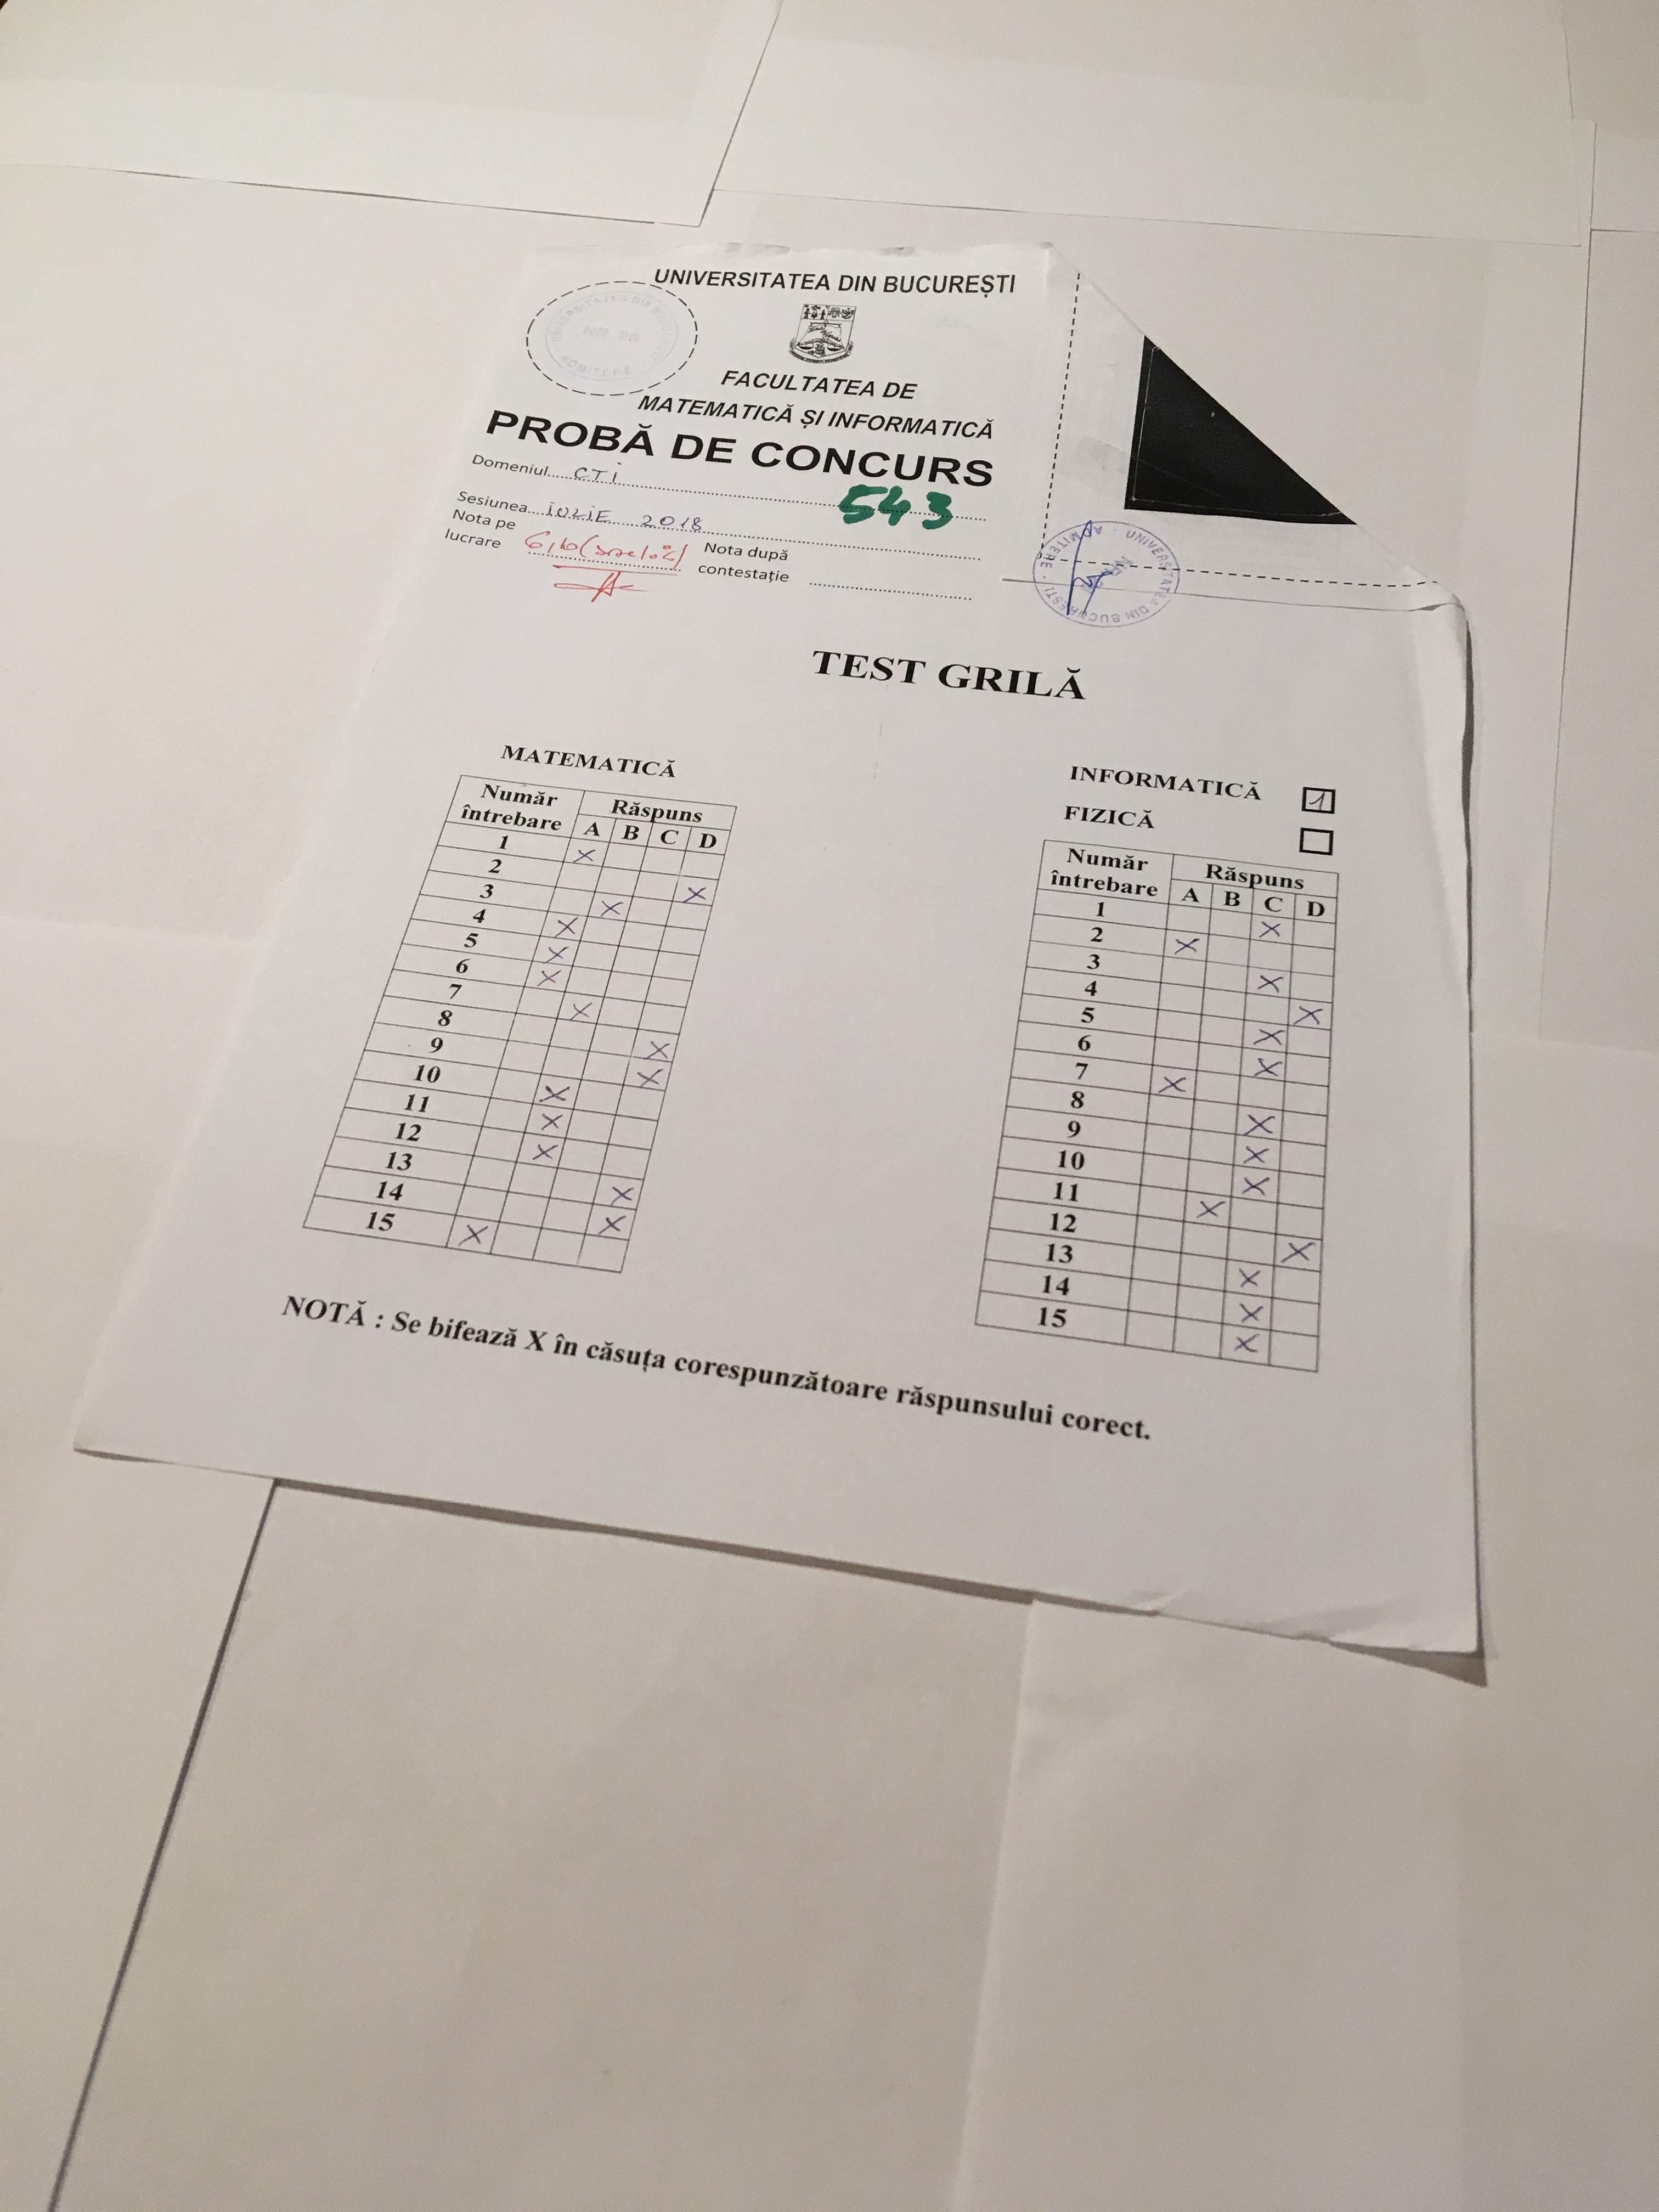 UNIVERSITATEA DIN BUCUREȘTI
UNIVERSITATEA DIN BUCUREȘTI
NR 20
ADMITERE
FACULTATEA DE
MATEMATICĂ ȘI INFORMATICĂ
PROBĂ DE CONCURS
Domeniul CTi
543
Sesiunea iULiE 2018
Nota pe
lucrare
Nota după
contestație
UNIVERSITATEA DIN BUCUREȘTI · ADMITERE ·
TEST GRILĂ
MATEMATICĂ
Număr
întrebare
Răspuns
A B C D
1 X
2 X
3 X
4 X
5 X
6 X
7 X
8 X
9 X
10 X
11 X
12 X
13 X
14 X
15 X
INFORMATICĂ 1
FIZICĂ
Număr
întrebare
Răspuns
A B C D
1 X
2 X
3 X
4 X
5 X
6 X
7 X
8 X
9 X
10 X
11 X
12 X
13 X
14 X
15 X
NOTĂ : Se bifează X în căsuța corespunzătoare răspunsului corect.